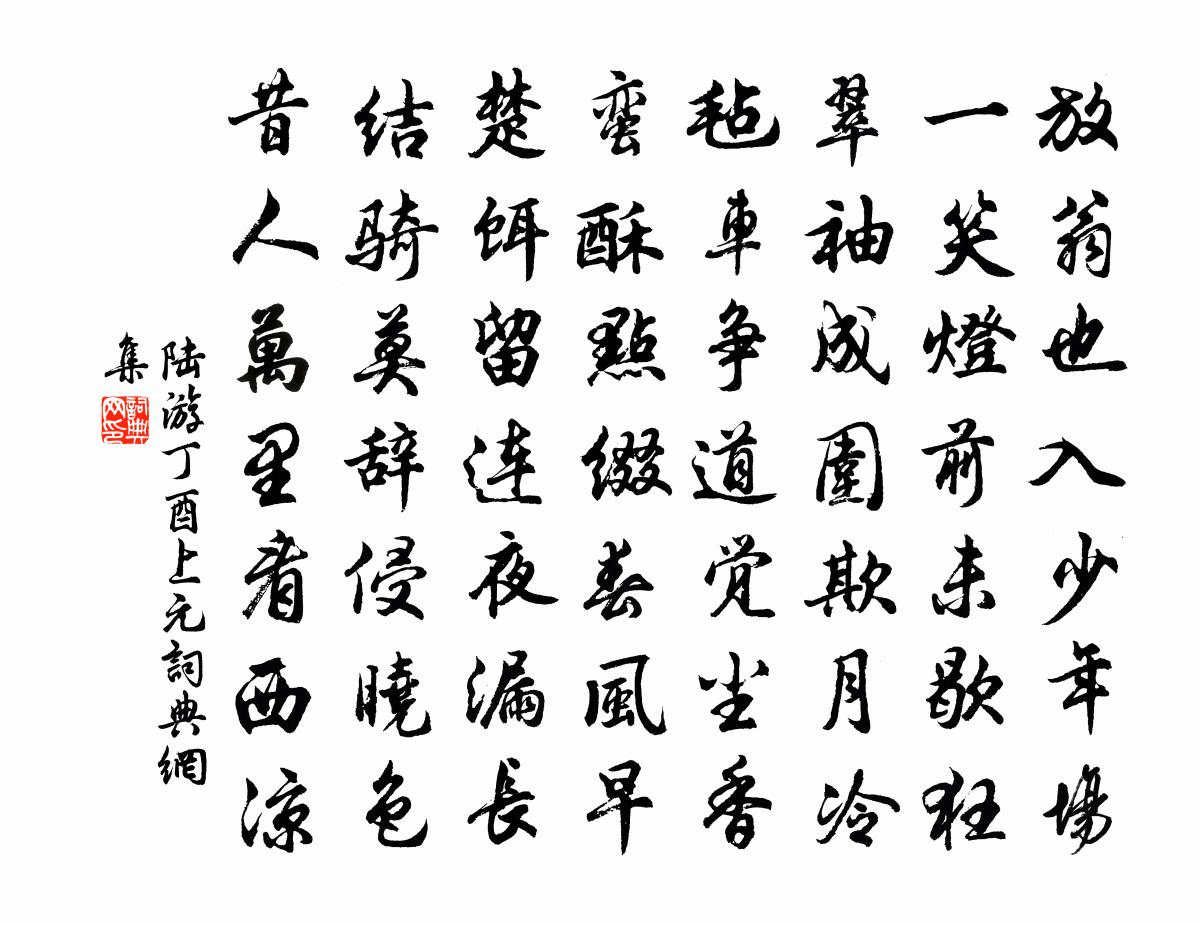 放翁也入少年場
一笑燈前未歇狂
翠袖成圍欺月冷
毡車争道觉尘香
蛮酥點缀春風早
楚饵留連夜漏長
結骑莫辞侵曉色
昔人萬里看西凉
陆游丁酉上元詞典網
集
詞典
网印